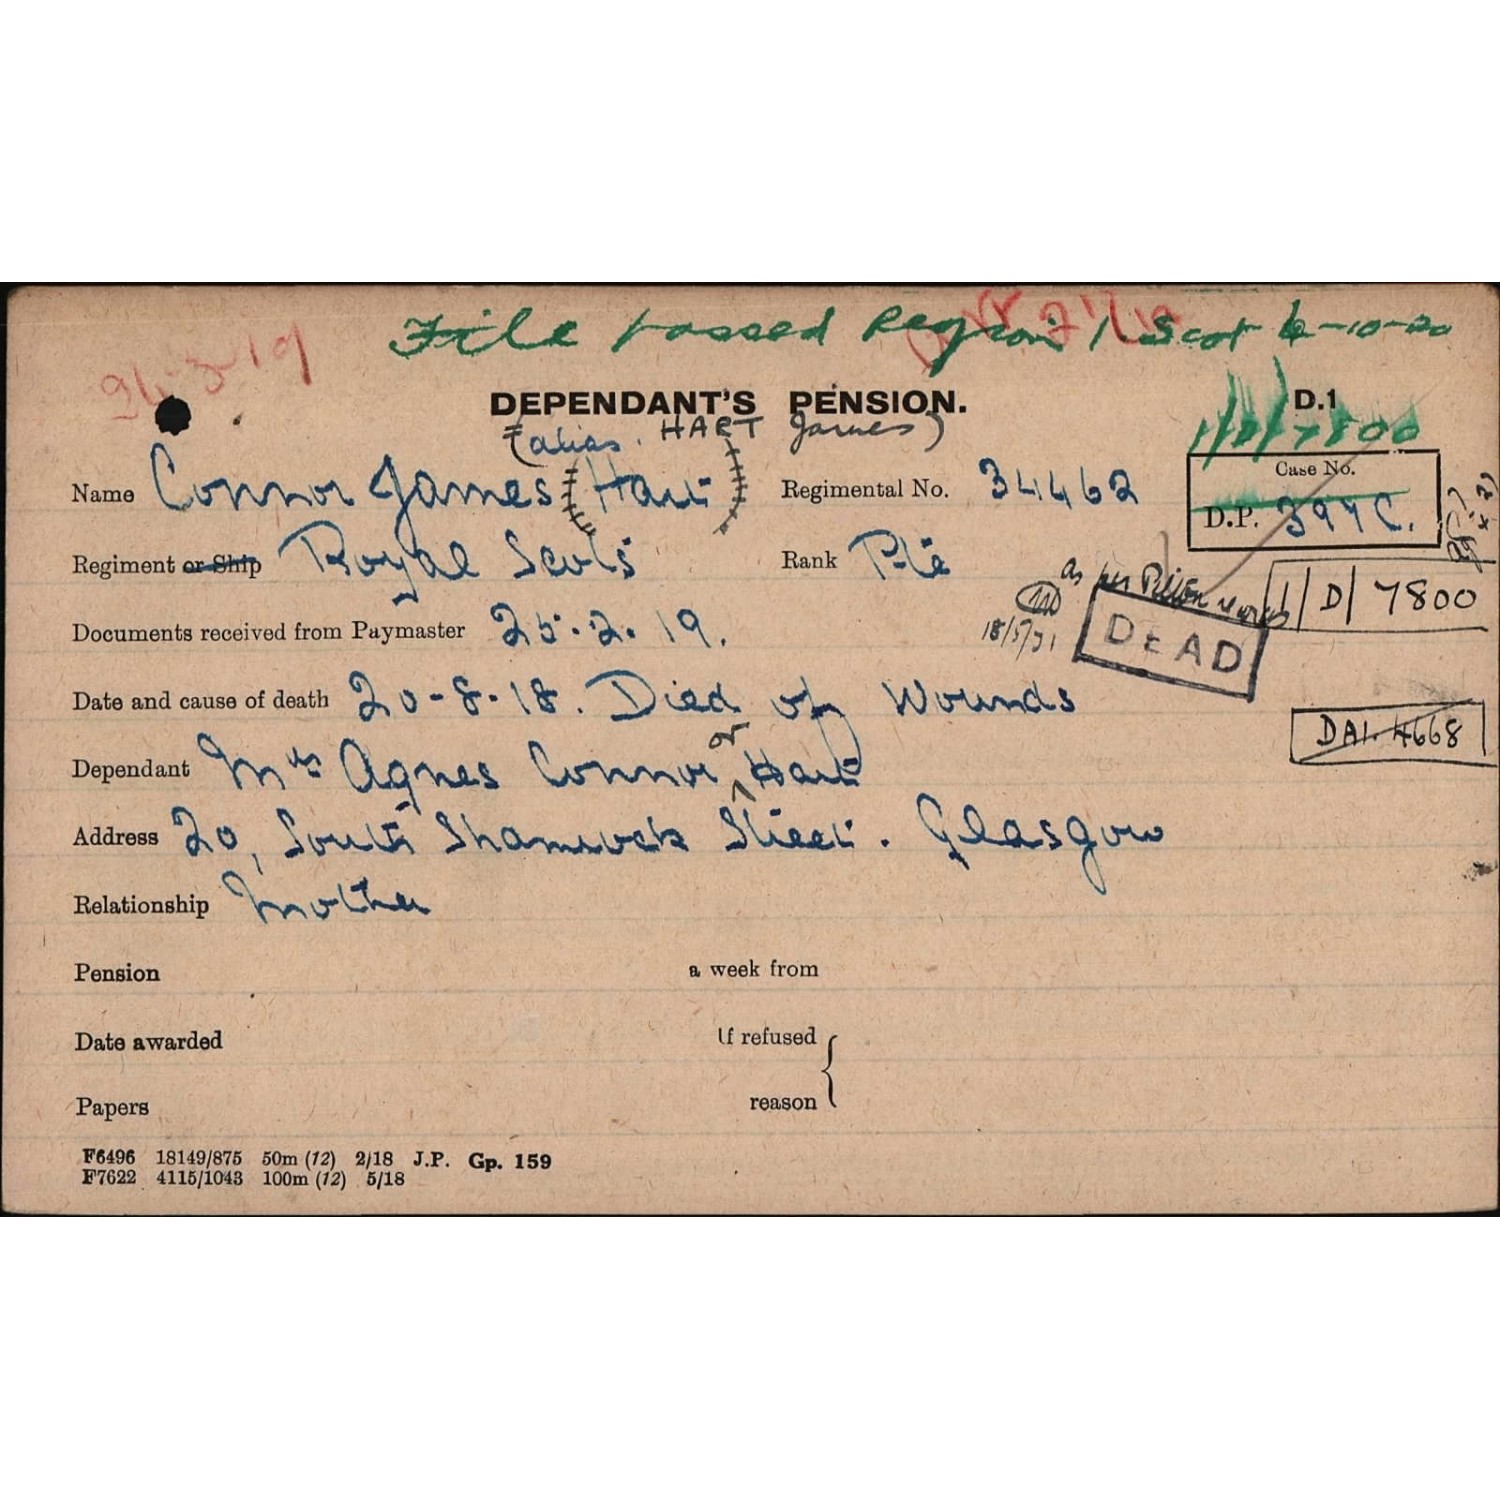 File passed Region 1 Scot 6-10-20
26.3.19
DEPENDANT'S PENSION.
D.1
1/D/7800
(alias. HART James)
Name Connor James (Hart) Regimental No. 34462
Case No.
D.P. 397C.
Regiment or Ship Royal Scots Rank Pte
as per
1/D/7800
18/5/31
DEAD
Documents received from Paymaster 25.2.19.
Date and cause of death 20-8-18. Died of Wounds
DA1. 4668
Dependant Mrs Agnes Connor or Hart
Address 20, South Shamrock Street. Glasgow
Relationship Mother
Pension a week from
Date awarded If refused
Papers reason
F6496 18149/875 50m (12) 2/18 J.P. Gp. 159
F7622 4115/1043 100m (12) 5/18